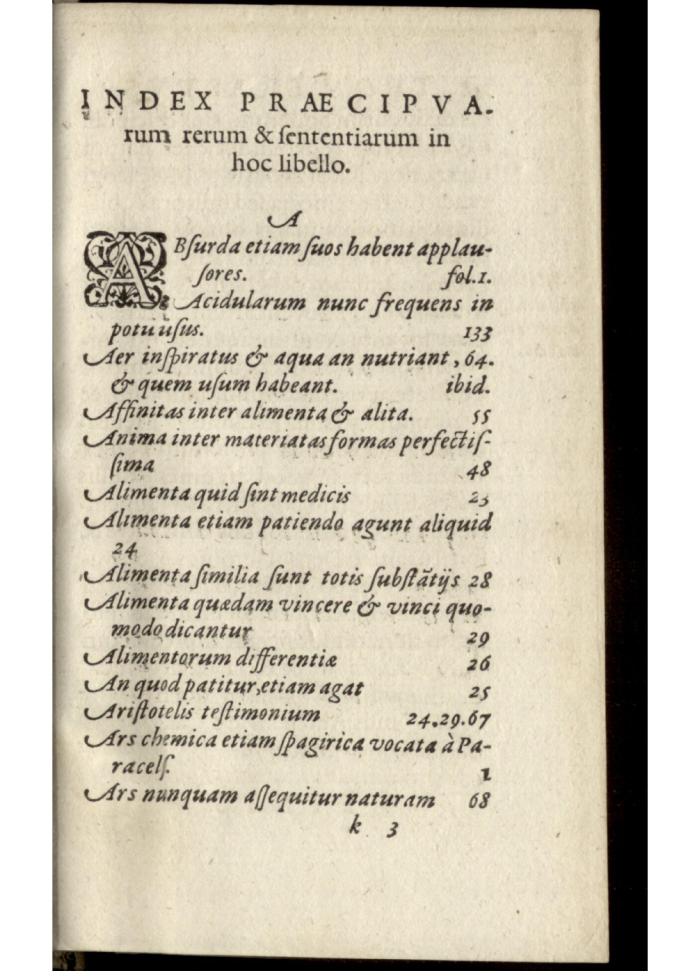 INDEX PRAECIPVA.
rum rerum & ſententiarum in
hoc libello.
A
ABſurda etiam ſuos habent applau-
ſores. fol.1.
Acidularum nunc frequens in
potu uſus. 133
Aer inſpiratus & aqua an nutriant, 64.
& quem uſum habeant. ibid.
Affinitas inter alimenta & alita. 55
Anima inter materiatas formas perfectiſ-
ſima 48
Alimenta quid ſint medicis 23
Alimenta etiam patiendo agunt aliquid
24
Alimenta ſimilia ſunt totis ſubſtãtijs 28
Alimenta quædam vincere & vinci quo-
modo dicantur 29
Alimentorum differentiæ 26
An quod patitur, etiam agat 25
Ariſtotelis teſtimonium 24.29.67
Ars chemica etiam ſpagirica vocata à Pa-
racelſ. 1
Ars nunquam aſſequitur naturam 68
k 3